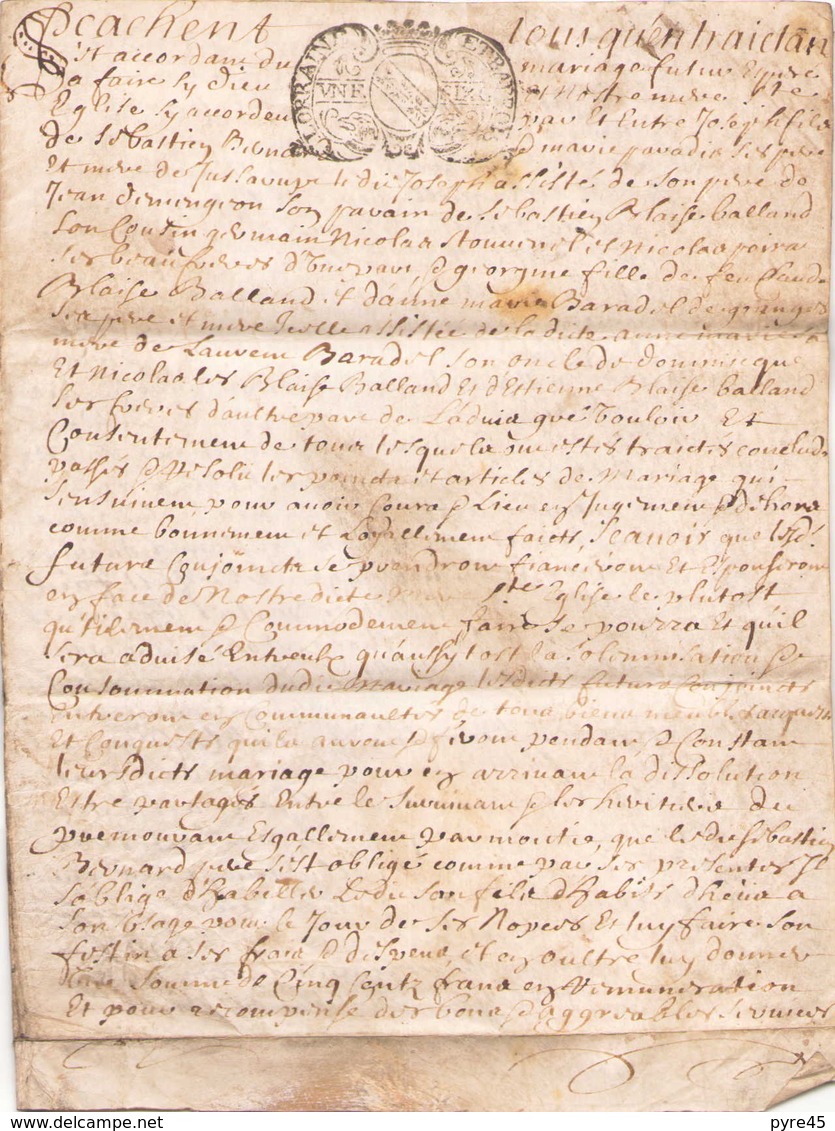 Scachent tous qu'en traictan
Et accordant du mariage futur Entre
Sa faire sy dieu et Nostre mere Ste
LORRAINE ET BAR
VNE SIX
Eglise sy accordent par Et Entre Joseph fils
de Sébastien Berna & marie paradis ses pere
Et mere de Jussarupt ledit Joseph assisté de son pere de
Jean demengeon son parain de Sébastien Blaise balland
son Cousin germain Nicolas Stouvenel et Nicolas
ses beaufreres d'Une part, & georgine fille de feu Claude
Blaise Balland et d'anne marie Baradel de granges
ses pere et mere Icelle assistée de ladicte anne marie sa
mere de Laurent Baradel son oncle de dominique
Et Nicolas les Blaise Balland Et d'Estienne Blaise balland
ses freres d'aultre part de L'aduis gré Vouloir Et
Consentement de tous lesquels ont estes traictes conclud
passés & resolu les poincts et articles de Mariage qui
s'ensuiuent pour auoir Cours & Lieu en Jugement & dehors
comme bonnement et Loyallement faicts Scauoir que lesd.
futurs Conjoincts se prendront fianceront Et Espouseront
en face de Nostredicte mere Ste Eglise le plutost
qu'Vtilement & Commodement faire se pourra Et qu'il
sera aduisé Entreulx qu'aussytost la solemnisation &
Consommation dudit Mariage lesdicts futurs Conjoincts
entreront en Communaultés de tous biens meubles acquests
Et Conquests qu'ils auront & feront pendant & Constant
leursdicts mariage pour en arriuant la dissolution
Estre partagés Entre le suruiuant & les heritiers du
premourant Esgallement par moitié, que ledit Sébastien
Bernard pere s'est obligé comme par ses presentes Il
s'oblige d'habiller Ledit son fils d'habits dheus a
son Usage pour le Jour de ses Nopces Et luy faire son
festin a ses frais & despens, et en oultre luy donner
Une somme de Cinq Centz frans en remuneration
Et pour recompense des bons & aggreables seruices
pyre45